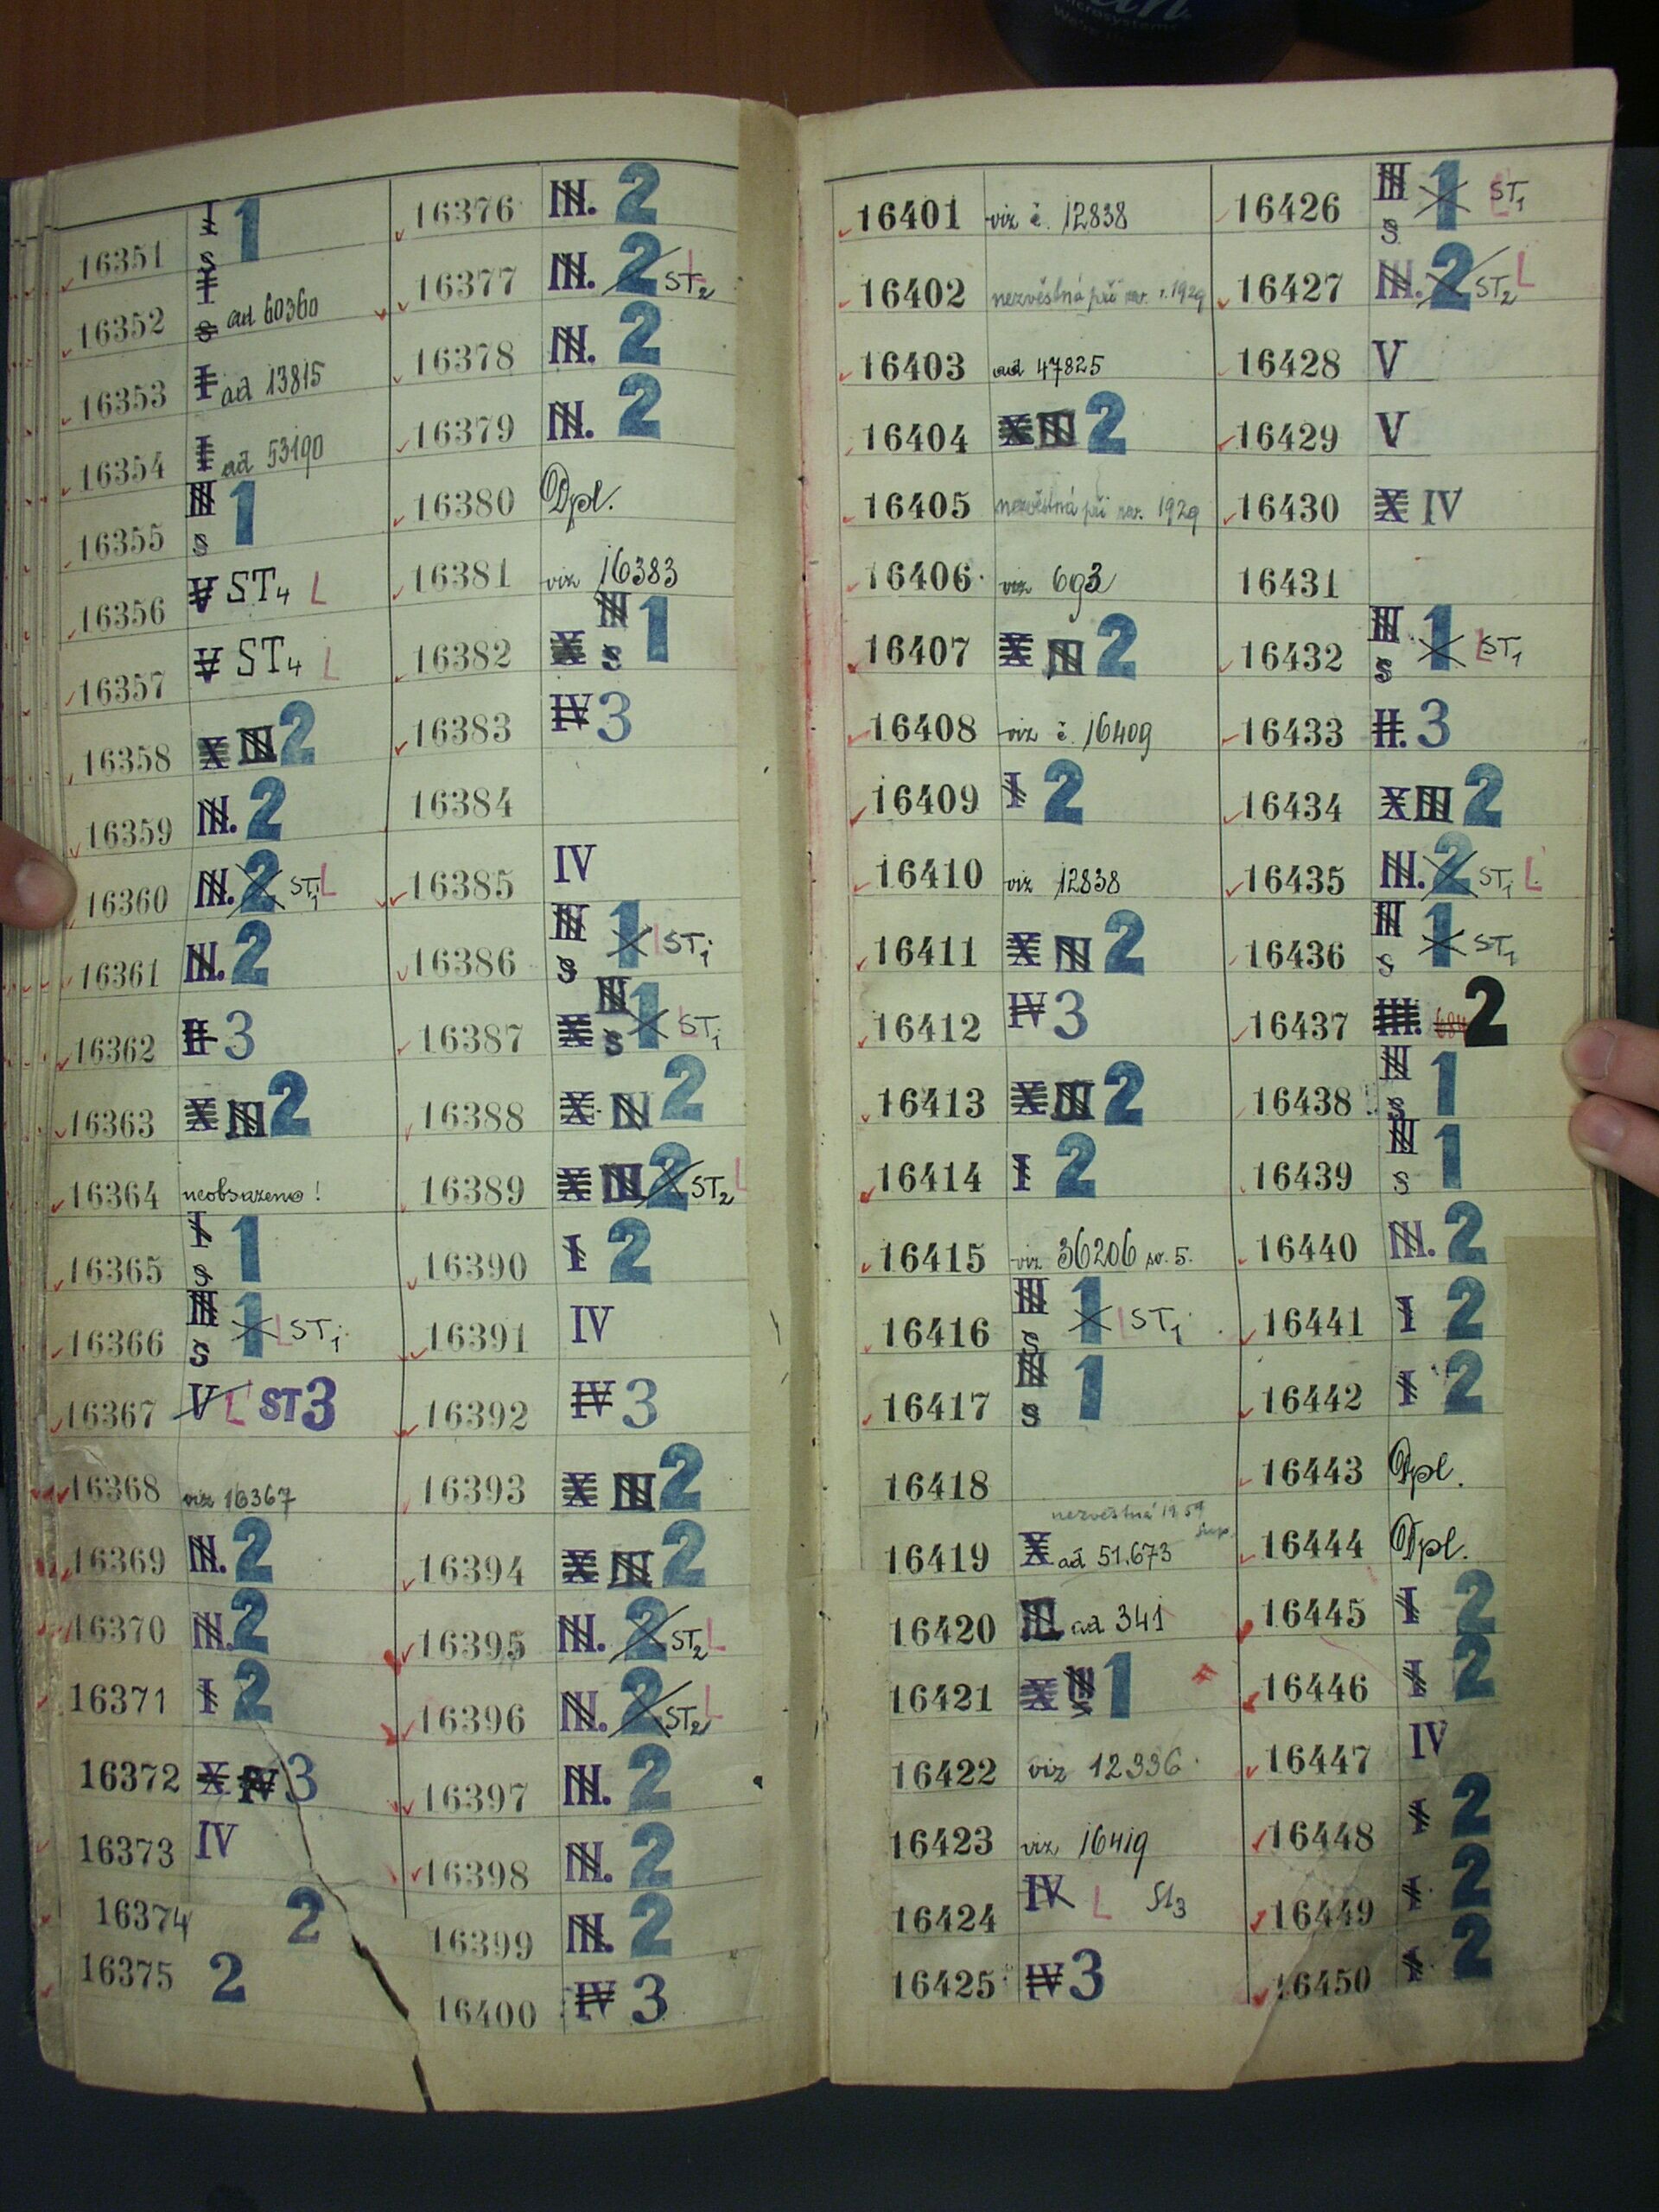 16351 I S 1
16352 I S ad 60360
16353 I ad 13815
16354 I ad 53190
16355 III S 1
16356 V ST4 L
16357 V ST4 L
16358 X III 2
16359 III. 2
16360 III. 2 ST1 L
16361 III. 2
16362 II 3
16363 X III 2
16364 neobsazeno!
16365 I S 1
16366 III S 1 L ST1
16367 V L ST3
16368 viz 16367
16369 III. 2
16370 III. 2
16371 I 2
16372 X IV 3
16373 IV
16374 2
16375 2
16376 III. 2
16377 III. 2 ST2 L
16378 III. 2
16379 III. 2
16380 Dpl.
16381 viz 16383
16382 X III S 1
16383 IV 3
16384
16385 IV
16386 III S 1 L ST1
16387 X III S 1 L ST1
16388 X III 2
16389 X III 2 ST2 L
16390 I 2
16391 IV
16392 IV 3
16393 X III 2
16394 X III 2
16395 III. 2 ST2 L
16396 III. 2 ST2 L
16397 III. 2
16398 III. 2
16399 III. 2
16400 IV 3
16401 viz č. 12838
16402 nezvěstná při rev. r. 1929
16403 ad 47825
16404 X III 2
16405 nezvěstná při rev. 1929
16406 viz 693
16407 X III 2
16408 viz č. 16409
16409 I 2
16410 viz 12838
16411 X III 2
16412 IV 3
16413 X III 2
16414 I 2
16415 viz 36206 sv. 5.
16416 III S 1 L ST1
16417 III S 1
16418
nezvěstná 1959
16419 X ad 51.673
16420 III ad 341
16421 X III S 1
16422 viz 12336
16423 viz 16419
16424 IV L St3
16425 IV 3
16426 III S 1 L ST1
16427 III. 2 ST2 L
16428 V
16429 V
16430 X IV
16431
16432 III S 1 L ST1
16433 II. 3
16434 X III 2
16435 III. 2 ST1 L
16436 III S 1 ST1
16437 III. 2
16438 III S 1
16439 III S 1
16440 III. 2
16441 I 2
16442 I 2
16443 Dpl.
16444 Dpl.
16445 I 2
16446 I 2
16447 IV
16448 I 2
16449 I 2
16450 I 2